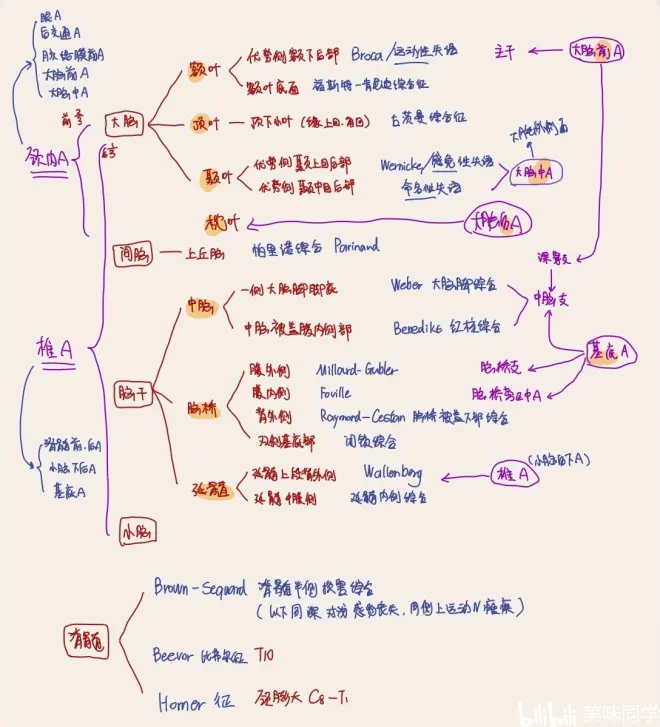 眼A
后交通A
脉络膜前A
大脑前A
大脑中A
前
颈内A
大脑
额叶
优势侧额下后部 Broca/运动性失语
额叶底面 福斯特-肯尼迪综合征
主干
大脑前A
顶叶
顶下小叶(缘上回.角回) 古茨曼综合征
颞叶
优势侧颞上回后部 Wernicke/感觉性失语
优势侧颞中回后部 命名性失语
大脑中A
枕叶
大脑后A
间脑
上丘脑 帕里诺综合 Parinand
深穿支
椎A
脑干
中脑
一侧大脑脚脚底 Weber 大脑脚综合
中脑被盖腹内侧部 Benedikt 红核综合
中脑支
基底A
脑桥
腹外侧 Millard-Gubler
腹内侧 Foville
背外侧 Raymond-Cestan 脑桥被盖下部综合
双侧基底部 闭锁综合
脑桥支
脑桥旁正中A
延髓
延髓上段背外侧 Wallenberg
延髓中腹侧 延髓内侧综合
椎A
(小脑后下A)
脊髓前.后A
小脑下后A
基底A
小脑
脊髓
Brown-Sequard 脊髓半侧损害综合
(以下同深对浅感觉丧失,同侧上运动N瘫痪)
Beevor 比弗尔征 T10
Horner 征 C8-T1
bilibili 美味同学